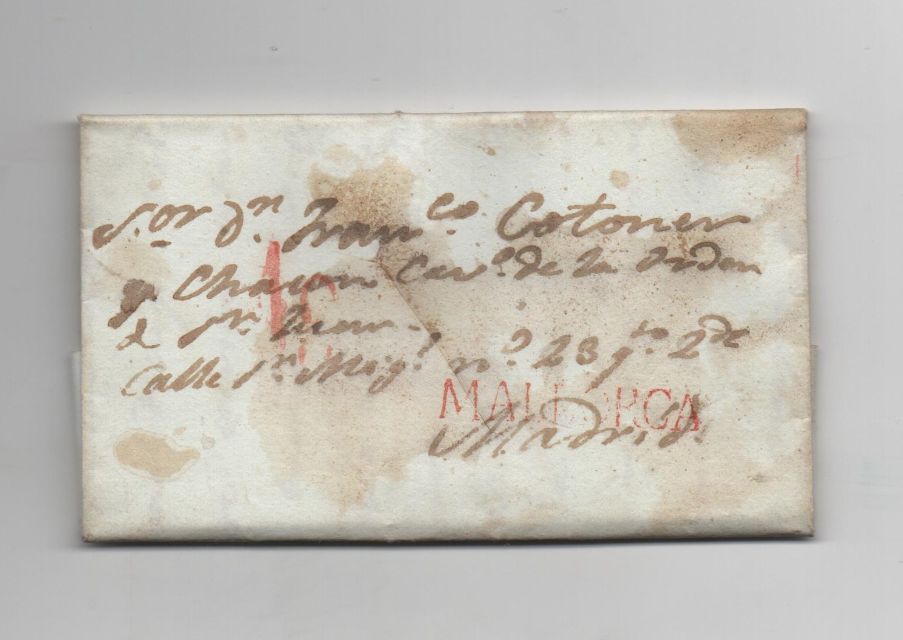 S.or Dn. Franco. Cotoner
y Chacon Cavo. de la Orden
d Sn. Juan.
Calle Sn. Migl. no. 23 qto. 2do
MALLORCA
Madrid.